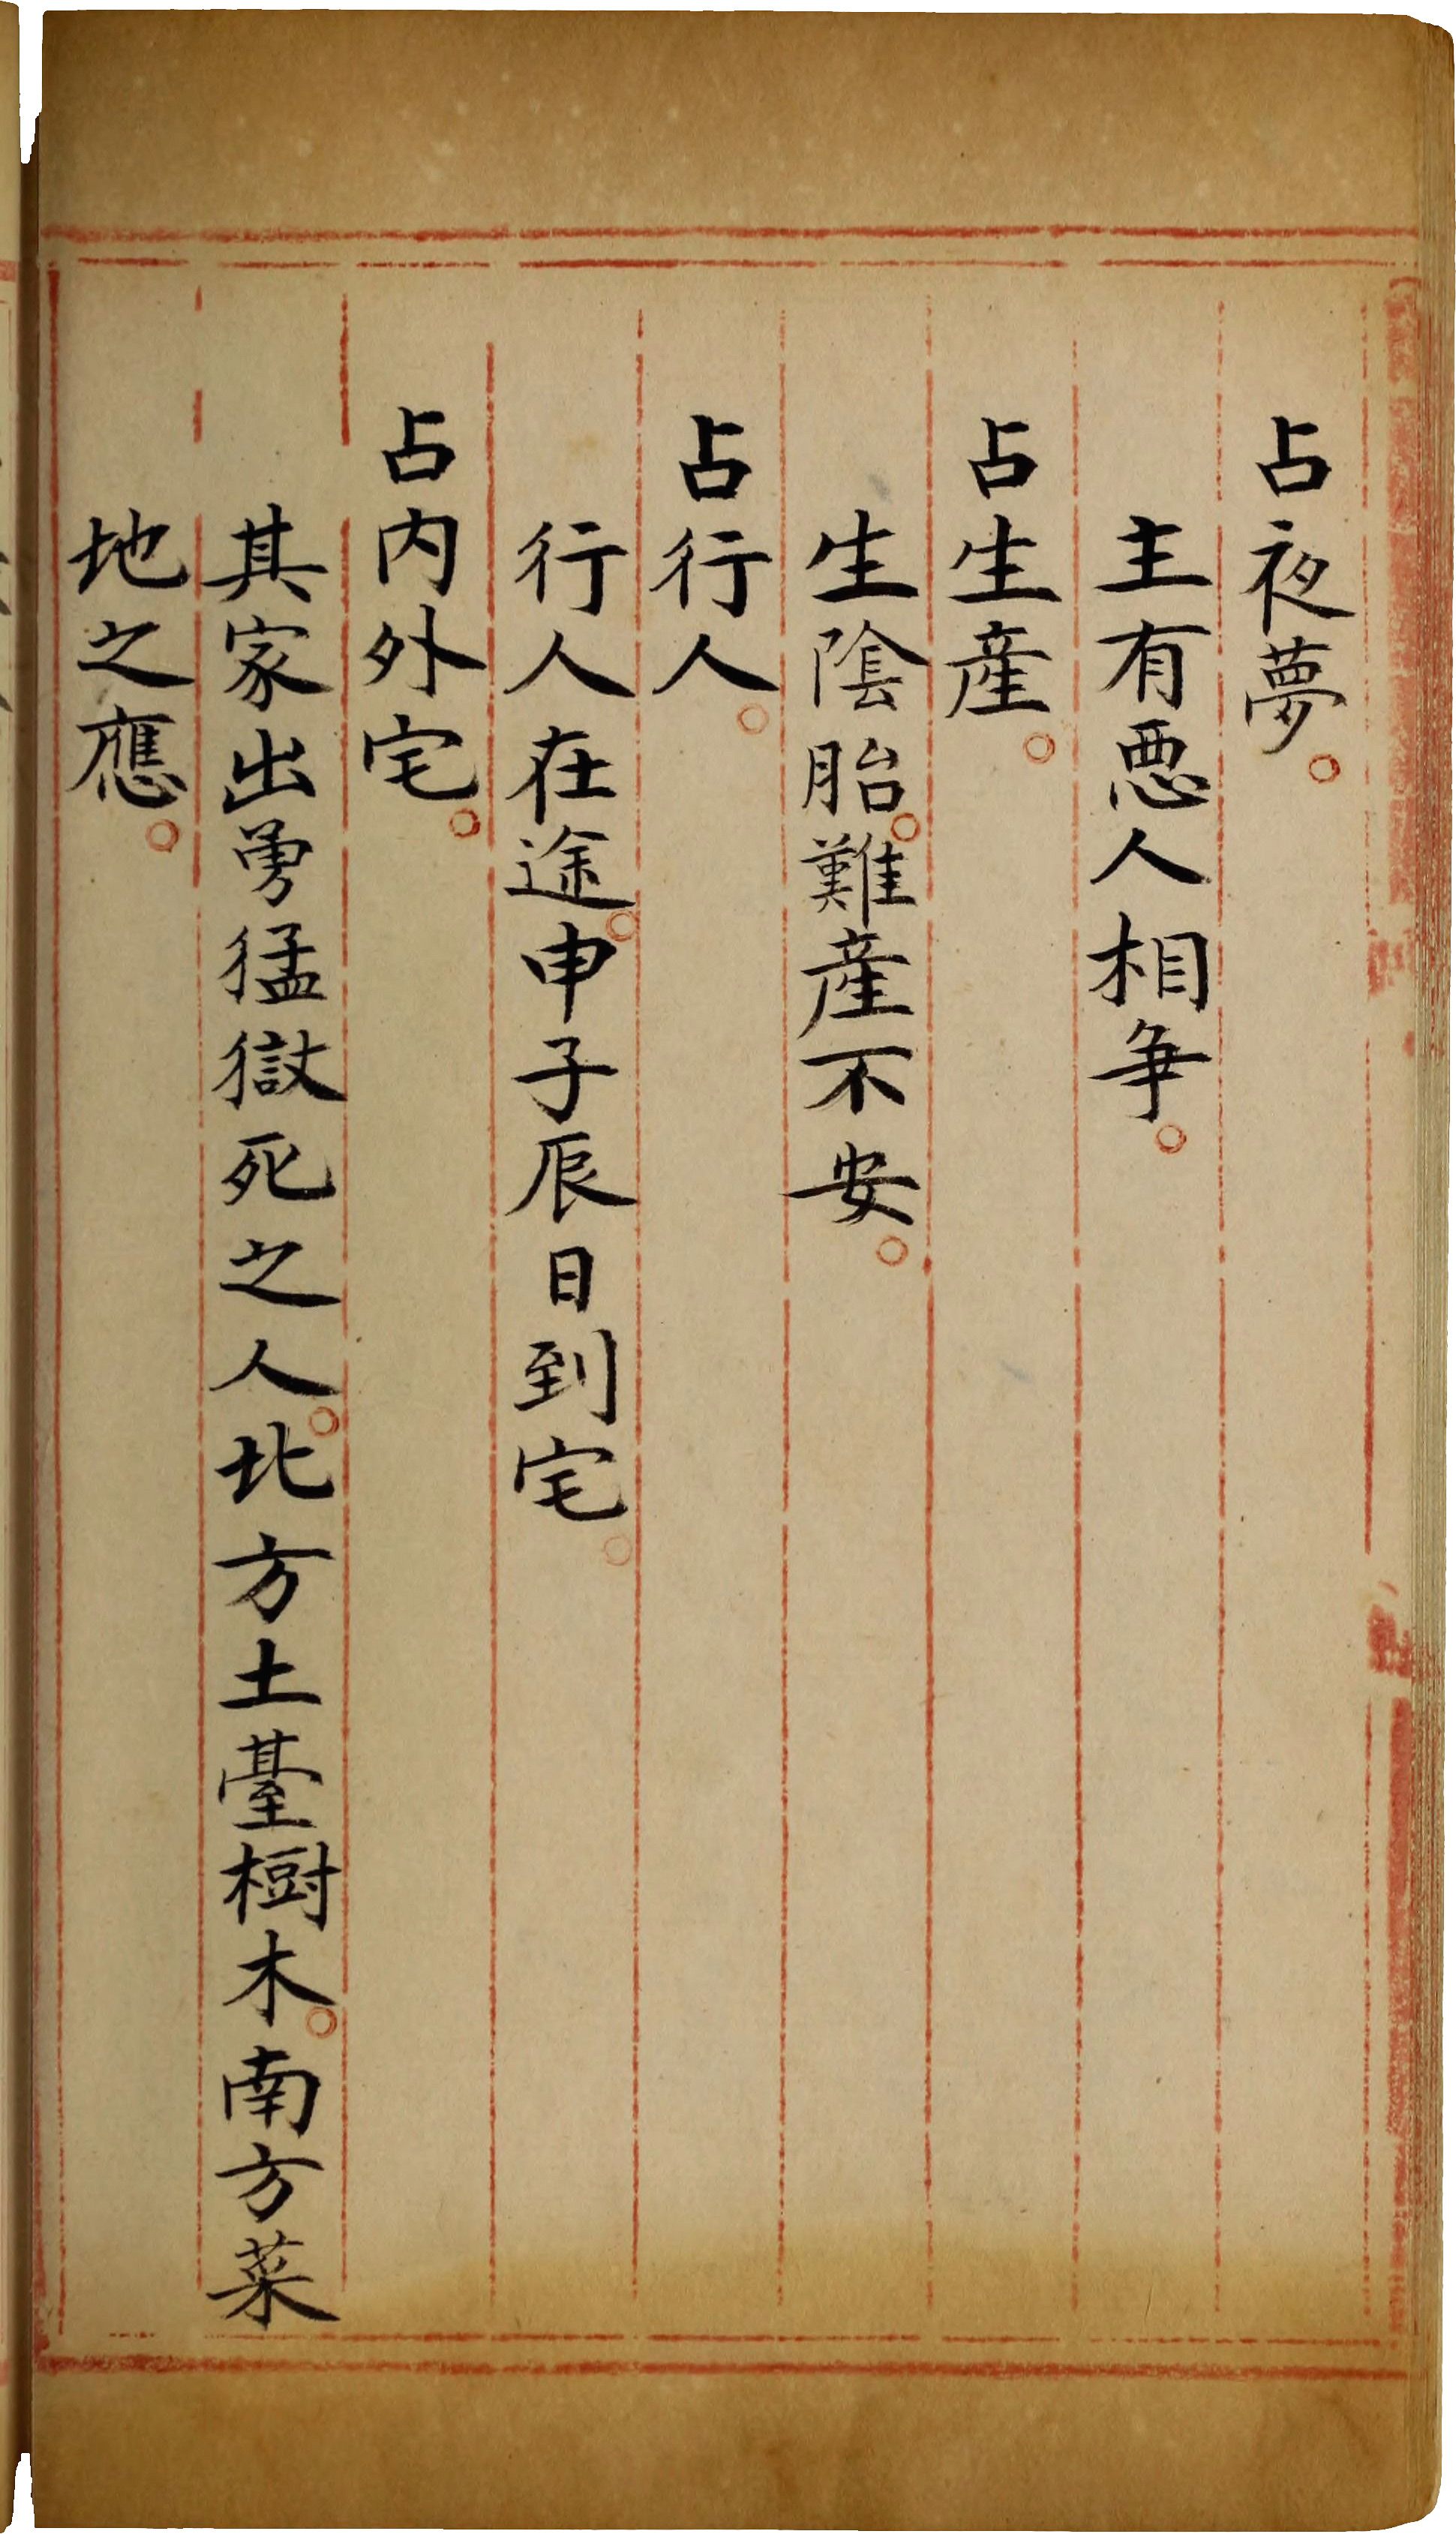 占夜夢。
主有惡人相爭。
占生產。
生陰胎。難產不安。
占行人。
行人在途。申子辰日到宅。
占內外宅。
其家出勇猛獄死之人。北方土臺樹木。南方菜
地之應。